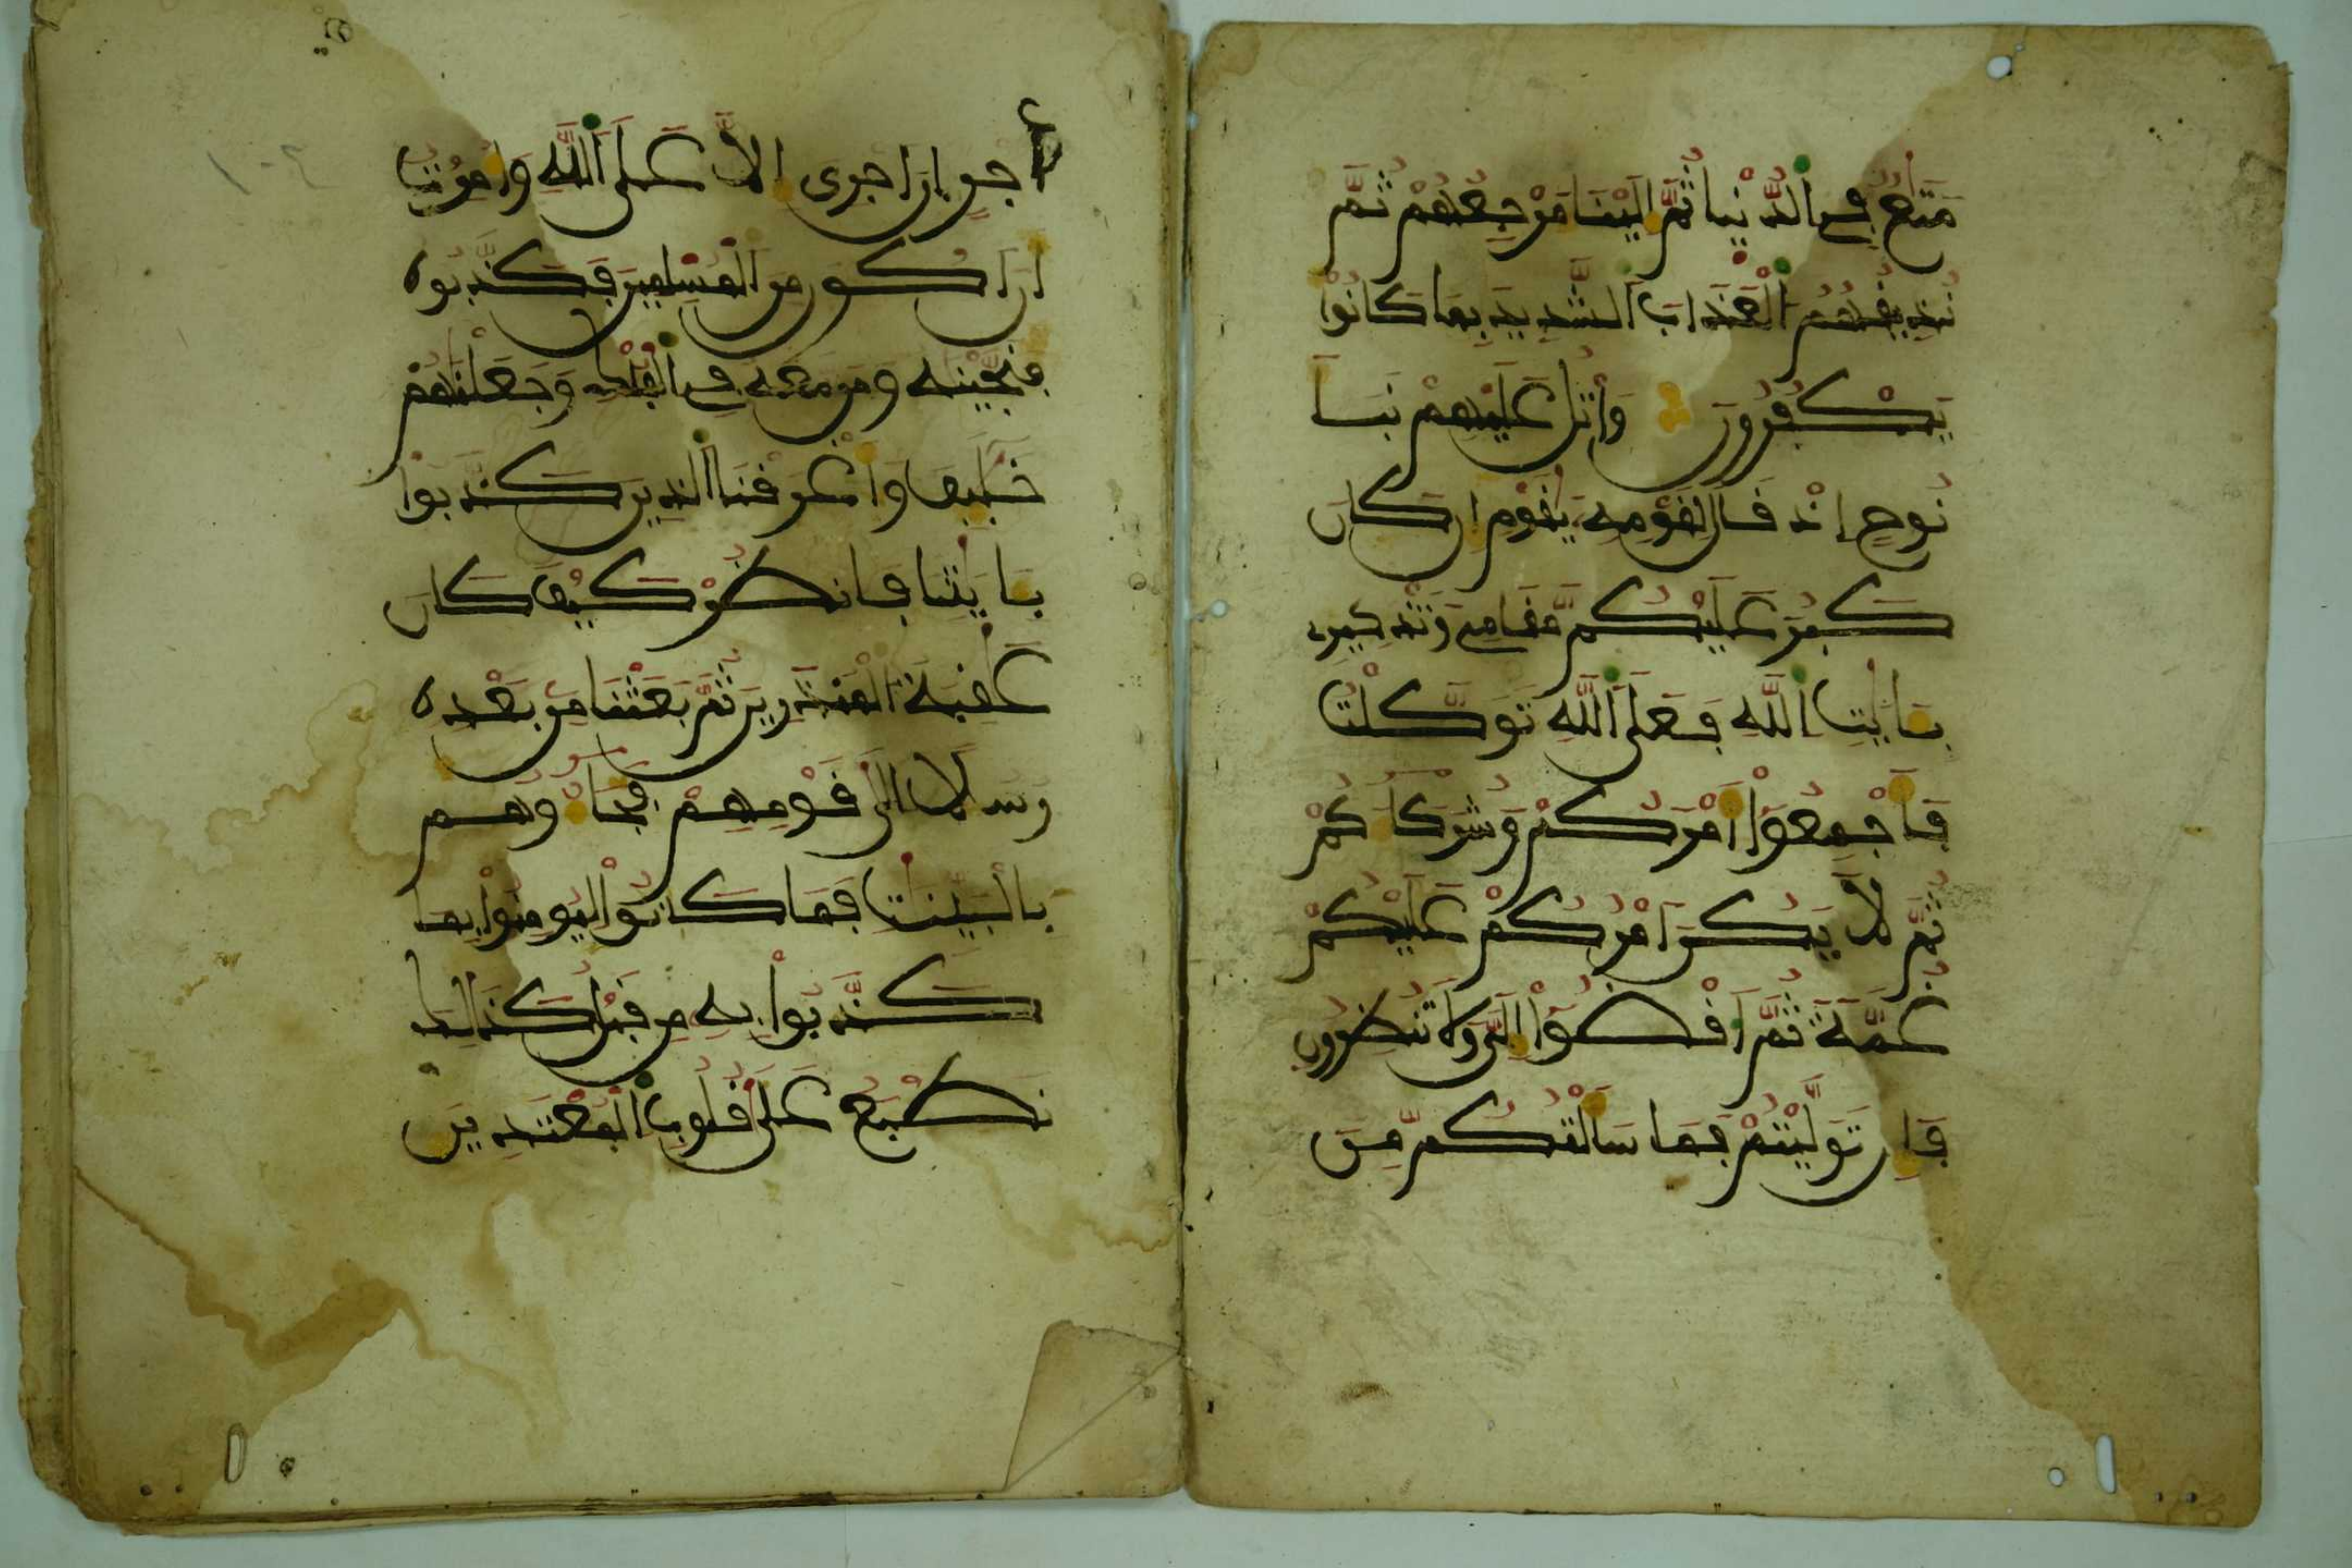 مَتَٰعٌ فِے اِ۬لدُّنْيا ثُمَّ إِلَيْنَا مَرْجِعُهُمْ ثُمَّ
نُذِيقُهُمُ اُ۬لْعَذَابَ اَ۬لشَّدِيدَ بِمَا كَانُواْ
يَكْفُرُونَ وَاتْلُ عَلَيْهِمْ نَبَأَ
نُوحٍ إِذْ قَالَ لِقَوْمِهِۦ يَٰقَوْمِ إِن كَانَ
كَبُرَ عَلَيْكُم مَّقَامِے وَتَذْكِيرِے
بِـَٔايَٰتِ اِ۬للَّهِ فَعَلَى اَ۬للَّهِ تَوَكَّلْتُ
فَأَجْمِعُوٓاْ أَمْرَكُمْ وَشُرَكَآءَكُمْ
ثُمَّ لَا يَكُنَ اَمْرُكُمْ عَلَيْكُمْ
غُمَّةٗ ثُمَّ اَقْضُوٓاْ إِلَيَّ وَلَا تُنظِرُونِ
فَإِن تَوَلَّيْتُمْ فَمَا سَأَلْتُكُم مِّنَ
اَجْرٍ اِنَ اَجْرِيَ إِلَّا عَلَى اَ۬للَّهِ وَأُمِرْتُ
أَنَ اَكُونَ مِنَ اَ۬لْمُسْلِمِينَ فَكَذَّبُوهُ
فَنَجَّيْنَٰهُ وَمَن مَّعَهُۥ فِے اِ۬لْفُلْكِ وَجَعَلْنَٰهُمْ
خَلَٰٓئِفَ وَأَغْرَقْنَا اَ۬لذِينَ كَذَّبُواْ
بِـَٔايَٰتِنَا فَانظُرْ كَيْفَ كَانَ
عَٰقِبَةُ اُ۬لْمُنذَرِينَ ثُمَّ بَعَثْنَا مِنۢ بَعْدِهِ
رُسُلًا إِلَىٰ قَوْمِهِمْ فَجَآءُوهُم
بِالْبَيِّنَٰتِ فَمَا كَانُواْ لِيُومِنُواْ بِمَا
كَذَّبُواْ بِهِۦ مِن قَبْلُ كَذَٰلِكَ
نَطْبَعُ عَلَىٰ قُلُوبِ اِ۬لْمُعْتَدِينَ